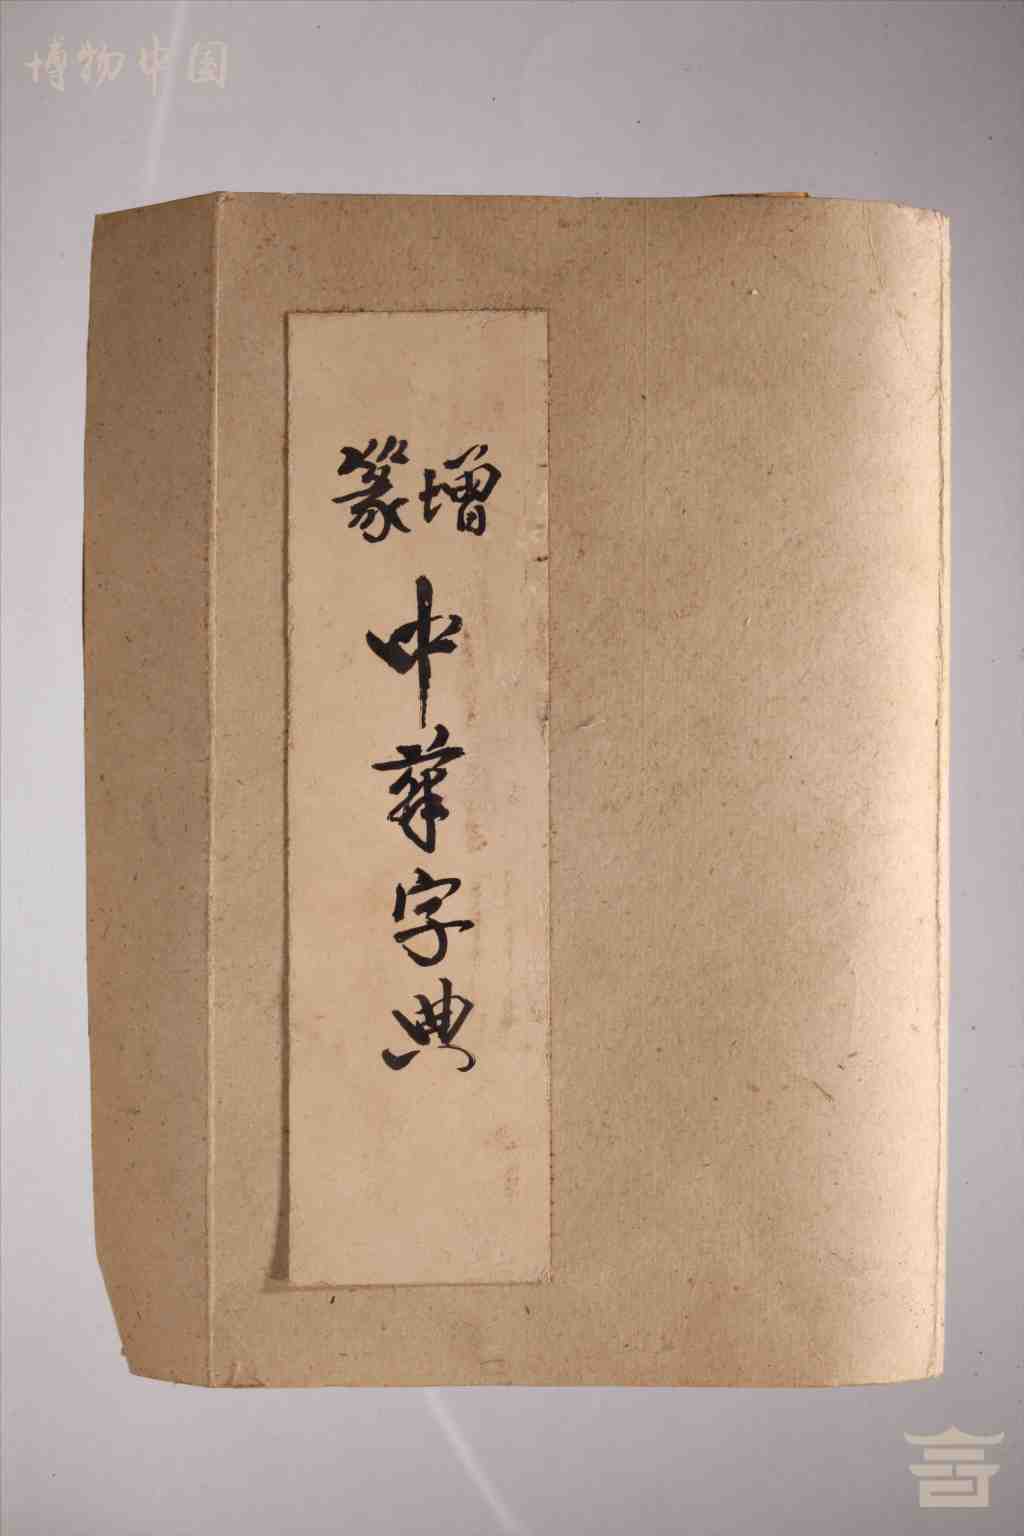 博物中国
增篆
中華字典